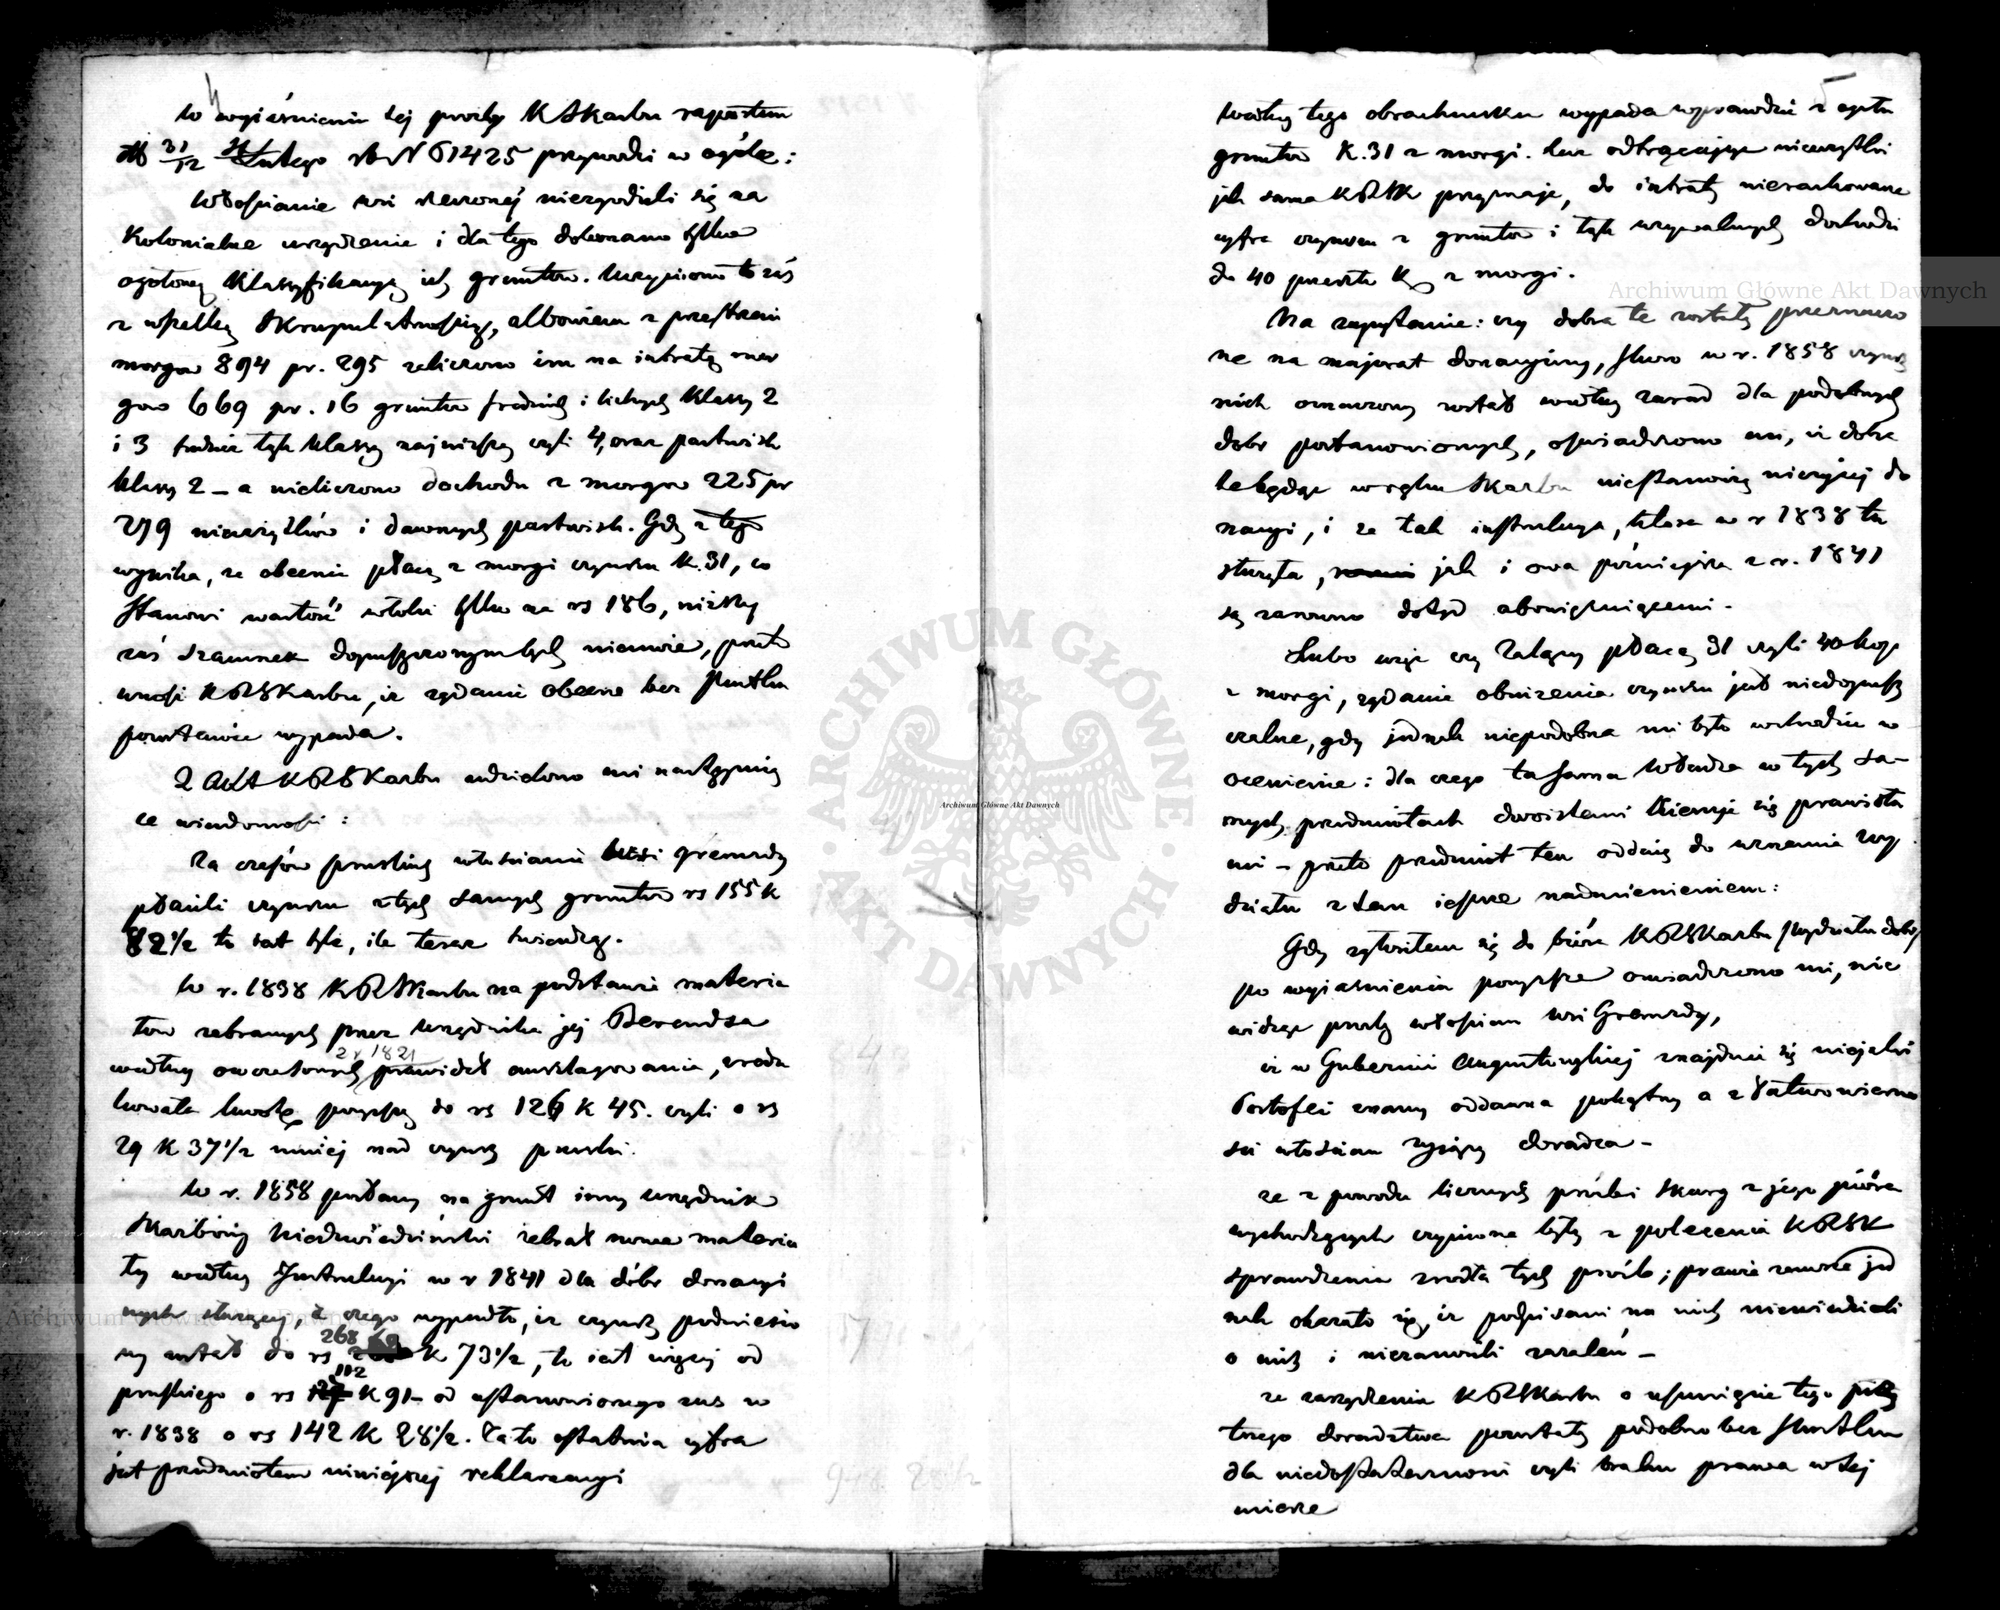 W wyiaśnieniu tej prośby K S Karbu raportem
31/12 Lutego rb N 61425 przywodzi w ogóle:
Włościanie wsi rzeczonej niezgodzili się na
Kolonialne urządzenie i dla tego dokonano tylko
ogólowej Klassyfikacyi ich gruntów. Uczyniono to zaś
z wszelką skrupulatnością, albowiem z przestrzeni
morgow 894 pr. 295 zaliczono im na intratę mor
gow 669 pr. 16 gruntów średnich i lichych klassy 2
i 3 tudzież łąk klassy najniższej czyli 4, oraz pastwisk
klassy 2 – a nieliczono dochodu z morgow 225 pr
279 nieużytków i dawnych pastwisk. Gdy z tego
wynika, że obecnie płacą z morgi czynszu K. 31, co
stanowi wartość włoki tylko na rs 186, niższy
zaś szacunek dopuszczonym być niemoże, przeto
wnosi KRSKarbu, iż żądanie obecne bez skutku
pozostawić wypada.
Z Akt KRSKarbu udzielono mi następują
ce wiadomości:
Za czasów pruskich włościanie wsi Gremzdy
płacili czynszu z tych samych gruntów rs 155 K
82½ to jest tyle, ile teraz twierdzą.
W r. 1838 KRSKarbu na podstawie materia
łow zebranych przez urzędnika jej Berendsa
z r 1821
według owczesnych prawideł anszlagowania, zredu
kowała kwotę powyższą do rs 126 K 45. czyli o rs
29 K 37½ mniej nad czynsz pruski.
W r. 1858 posłany na grunt inny urzędnik
Skarbowy Niedzwiedziński zebrał nowe materia
ły według Instrukcyi w r 1841 dla dóbr donacyi
nych służącej, z czego wypadło, iż czynsz podniesio
ny został do rs 268 K 73½, to jest więcej od
pruskiego o rs 112 K 91 – od ustanowionego zaś w
r. 1838 o rs 142 K 28½. Ta to ostatnia cyfra
jest przedmiotem niniejszej reklamacyi
5
Według tego obrachunku wypada wprawdzie z ogółu
gruntów K. 31 z morgi. Lecz odtrącając nieużytki
jak sama KRSK przyznaje, do intraty nierachowane
cyfra czynszu z gruntów i łąk używalnych dochodzi
do 40 przeszło K z morgi.
Na zapytanie: czy dobra te zostały przeznaczo
ne na majorat donacyjny, skoro w r. 1858 czynsz
nich oznaczony został według zasad dla podobnych
dóbr postanowionych, oświadczono mi, iż dobra
te będąc w ręku Skarbu niestanowią niczyjej do
nacyi, i że tak instrukcya, która w r 1838 tu
służyła, jak i owa późniejsza z r. 1841
są zarowno dotąd obowiązującemi –
Lubo więc czy Żalący płacą 31 czyli 40 kop
z morgi, żądanie obniżenia czynszu jest niedopusz
czalne, gdy jednak niepodobna mi było wchodzić w
ocenienie: dla czego ta sama Władza w tych sa–
mych przedmiotach dwoistemi kieruje się prawidła
mi – przeto przedmiot ten oddaję do uznania Wy
działu z tem jeszcze nadmienieniem:
Gdy zgłosiłem się do biura KRSKarbu /Wydziału dóbr/
po wyiaśnienia powyższe oświadczono mi, nie
widząc prośby włościan wsi Gremzdy,
iż w Gubernii Augustowskiej znajduje się niejaki
Portofei znany oddawna pokątny a z łatwowierno
ści włościan żyjący doradca –
że z powodu licznych próśb i skarg z jego pióra
wychodzących czynione były z polecenia KRSK
sprawdzenia zrodła tych próśb; prawie zawsze jed
nak okazało się, iż podpisani na nich niewiedzieli
o nich i niezanosili zażaleń –
że zarządzenia KRSKarbu o usunięcie tego poką
tnego doradztwa pozostały podobno bez skutku
dla niedostateczności czyli braku prawa w tej
mierze